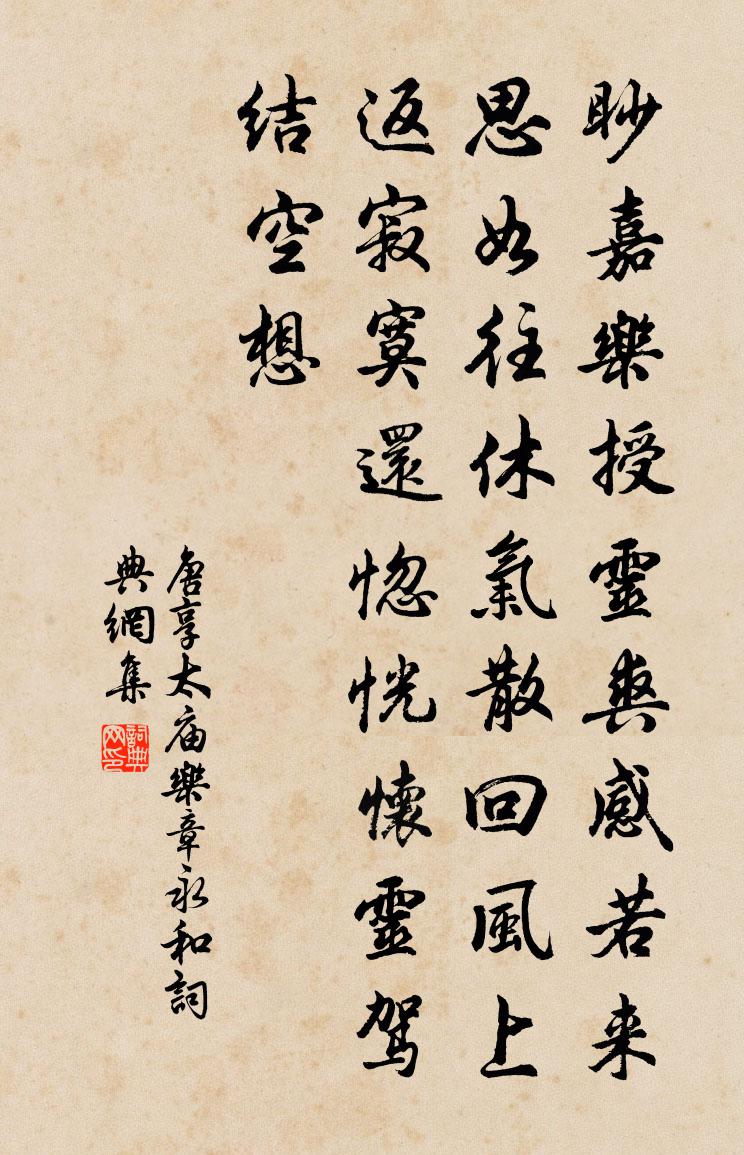 眇嘉樂授靈爽感若来
思如往休氣散回風上
返寂寞還惚恍懷靈駕
結空想
唐享太庙樂章永和詞
典網集
詞典网印